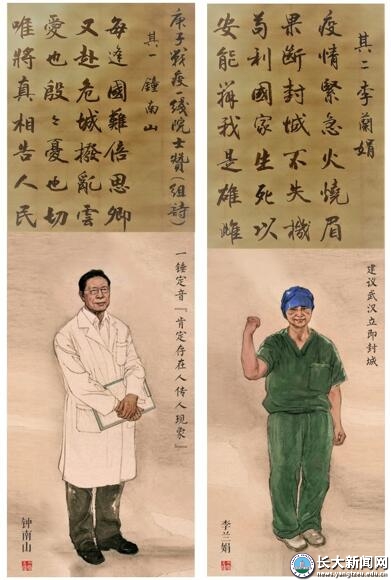 庚子戰疫一綫院士贊(組詩)
其一 鐘南山
每逢國難倍思卿
又赴危城撥亂雲
愛也殷々憂也切
唯將真相告人民
一锤定音『肯定存在人传人现象』
钟南山
其二 李蘭娟
疫情緊急火燒眉
果斷封城不失機
苟利國家生死以
安能辨我是雄雌
建议武汉立即封城
李兰娟
长大新闻网
news.yangtzeu.edu.cn